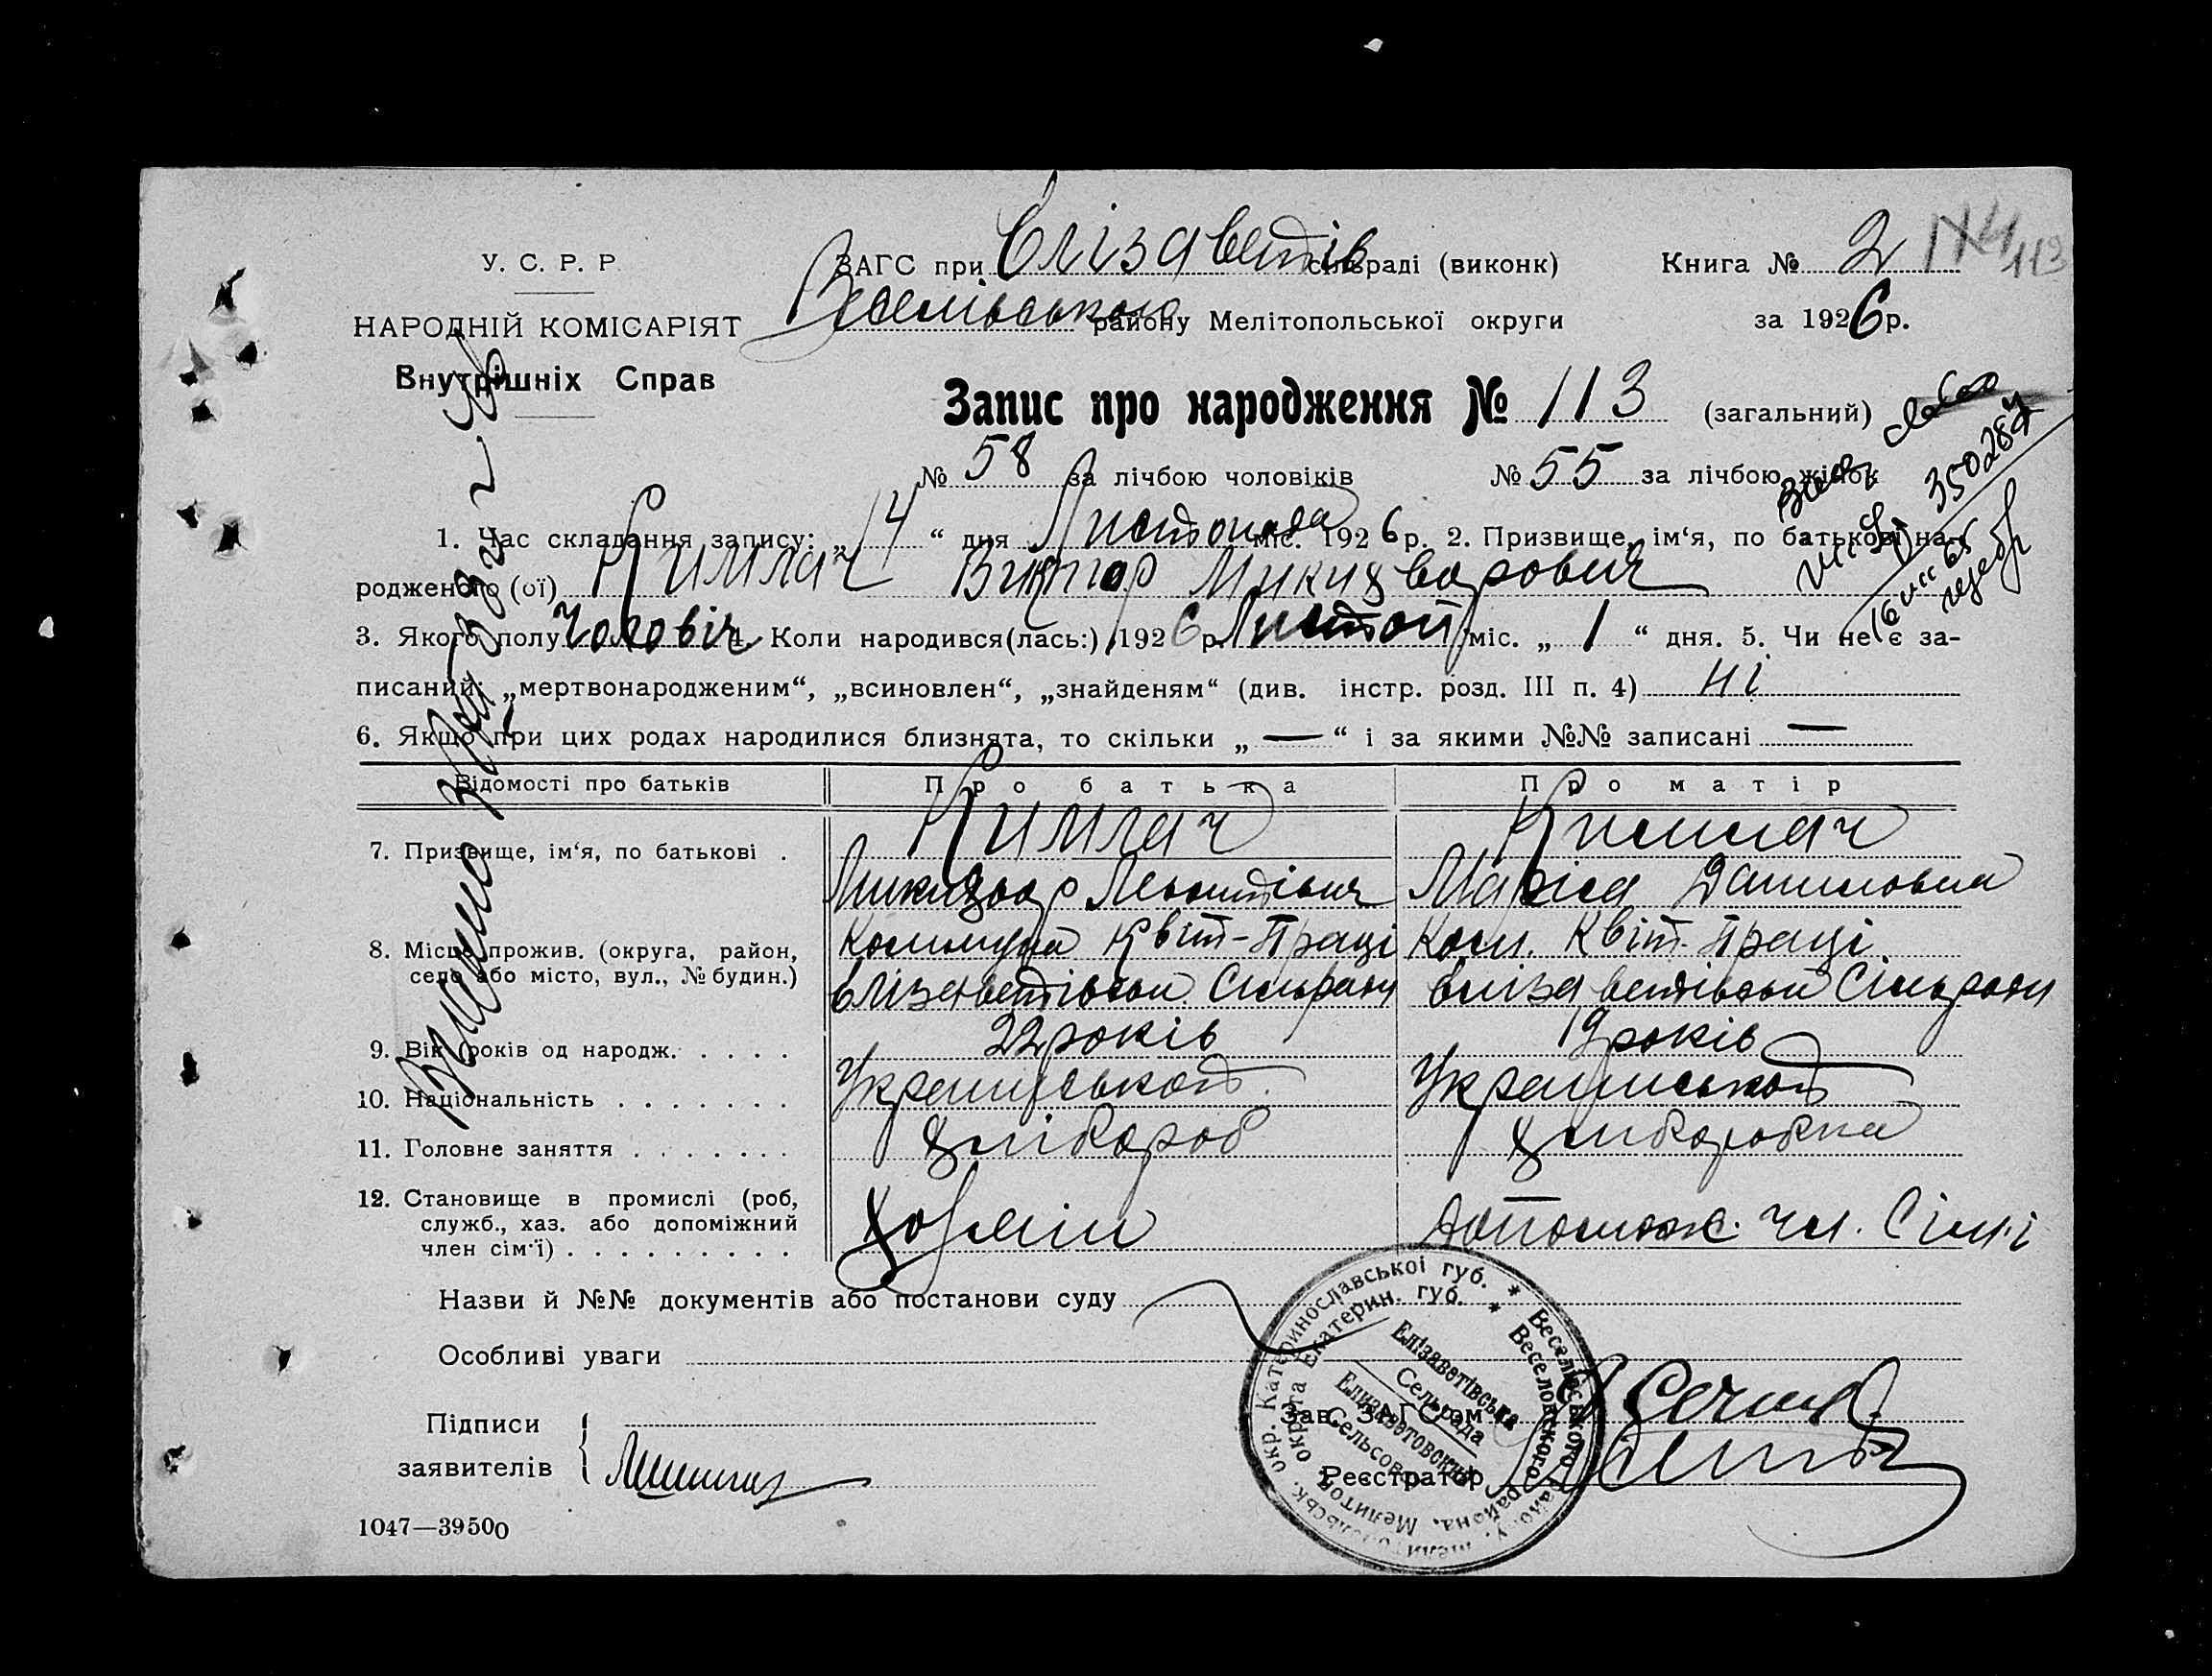 У. С. Р. Р.
НАРОДНІЙ КОМІСАРІЯТ
Внутрішніх Справ
ЗАГС при Єлізаветів сільраді (виконк)
Веселівською району Мелітопольської округи
Книга № 2
113
за 1926 р.
Запис про народження № 113 (загальний)
№ 58 за лічбою чоловіків № 55 за лічбою жінок
1. Час складання запису: „14“ дня Листопада міс. 1926 р. 2. Призвище, ім‘я, по батькові на-
родженого (ої) Кимлач Виктор Микищорович
3. Якого полу Чоловіч 4. Коли народився(лась:) 1926 р. Листоп міс. „1“ дня. 5. Чи не є за-
писаний: „мертвонародженим“, „всиновлен“, „знайденям“ (див. інстр. розд. III п. 4) ні
6. Якщо при цих родах народилися близнята, то скільки „—“ і за якими №№ записані —
Відомості про батьків Про батька Про матір
7. Призвище, ім‘я, по батькові . Кимлач Кимлач
Леонтівич Маріса Даниловна
8. Місце прожив. (округа, район, Коммуна Квіт-Праці Ком. Квіт. Праці
село або місто, вул., № будин.) Єлізаветівськой Сільради Єлізаветівськой Сільради
9. Вік (років од народж. . . . . 22 років 19 років
10. Національність . . . . . . . Українськой Українськой
11. Головне заняття . . . . . . . Хлібороб Хліборобка
12. Становище в промислі (роб,
служб., хаз. або допоміжний Хозяін допомож. чл. Сімі
член сім‘ї) . . . . . . . . .
Назви й №№ документів або постанови суду
Особливі уваги
Підписи
заявителів
Зав. ЗАГС‘ом
Реєстратор
1047—39500
Видано
350287
Катеринославської губ. * Веселівського району
Екатерин. губ. * Веселовского района, Мелитоп. округа
Елізаветівська
Сельрада
Елизаветовский
Сельсовет